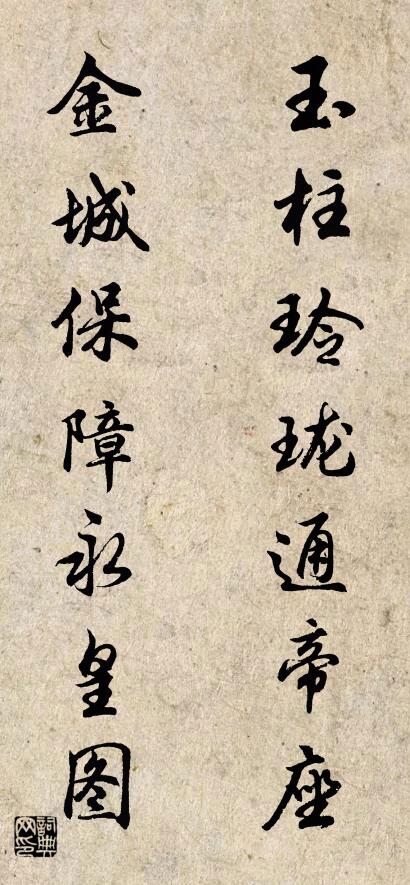 玉柱玲珑通帝座
金城保障永皇图
词典网印